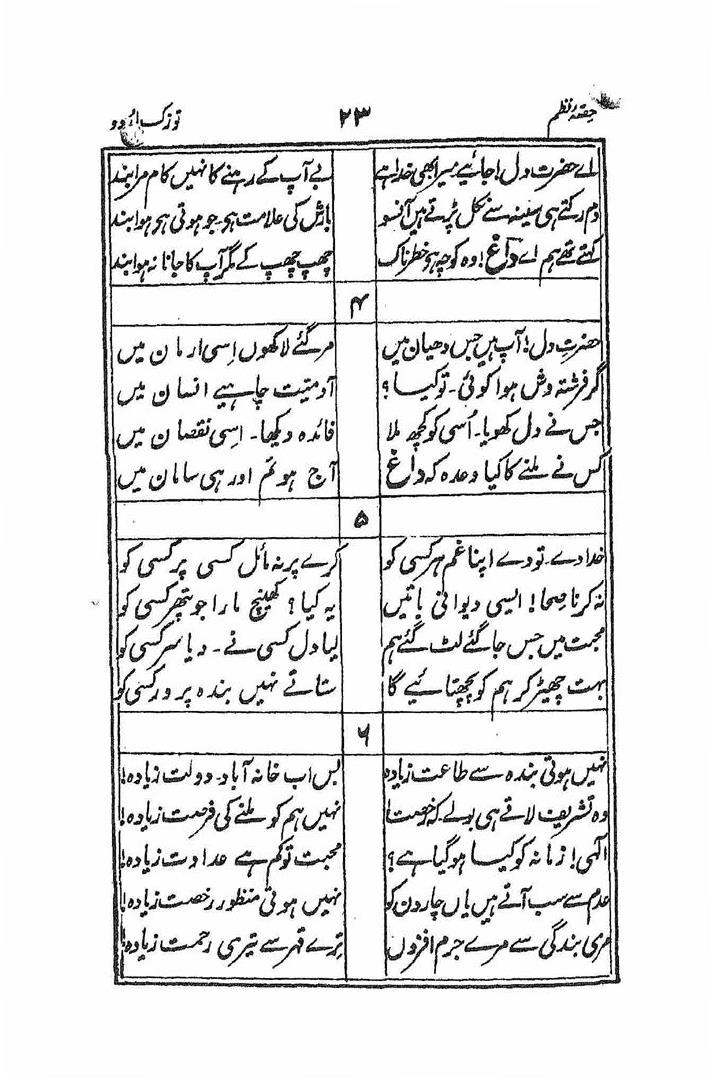 حصۂ نظم ۲۳ توزک اردو
اے حضرت دل! جائیے میرا بھی خدا ہے بے آپ کے رہنے کا نہیں کام مرا بند
دم رکتے ہی سینہ سے نکل پڑتے ہیں آنسو بارش کی علامت ہو جو ہوتی ہو ہوا بند
کہتے تھے ہم اے داغ! وہ کوچہ ہو خطرناک چھپ چھپ کے مگر آپ کا جانا نہ ہوا بند
۴
حضرت دل! آپ ہیں جس دھیان میں مر گئے لاکھوں اسی ارمان میں
اگر فرشتہ وش ہوا کوئی۔ تو کیا؟ آدمیت چاہیے انسان میں
جس نے دل کھویا۔ اُسی کو کچھ ملا فائدہ دیکھا۔ اسی نقصان میں
کس نے ملنے کا کیا وعدہ کہ داغ آج ہو تم اور ہی سامان میں
۵
خدا دے۔ تو دے اپنا غم ہر کسی کو کرے پر نہ مائل کسی پر کسی کو
نہ کر ناصحا! ایسی دیوانی باتیں یہ کیا؟ کھینچ مارا جو پتھر کسی کو
محبت میں جس جا گئے لٹ گئے ہم لیا دل کسی نے۔ دیا سر کسی کو
بہت چھیڑ کر ہم کو پچھتائیے گا ستاتے نہیں بندہ پرور کسی کو
۶
نہیں ہوتی بندہ سے طاعت زیادہ بس اب خانہ آباد۔ دولت زیادہ!
وہ تشریف لاتے ہی بولے کہ رخصت! نہیں ہم کو ملنے کی فرصت زیادہ!
الٰہی! زمانہ کو کیسا ہو گیا ہے؟ محبت تو کم ہے عداوت زیادہ!
عدم سے سب آتے ہیں یاں چار دن کو نہیں ہوتی منظور رخصت زیادہ!
مری بندگی سے مرے جرم افزوں ترے قہر سے تیری رحمت زیادہ!